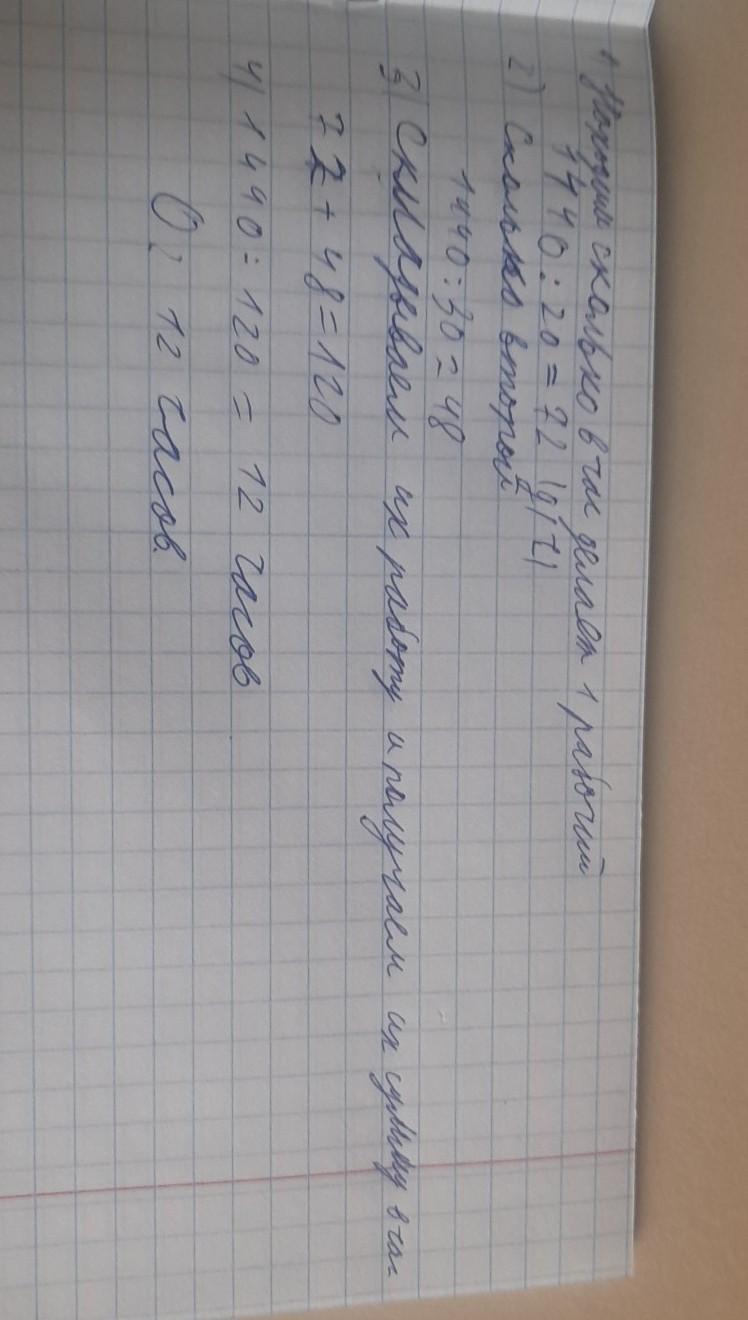 1) Находим сколько в час делает 1 рабочий
1440 : 20 = 72 (д/ч)
2) Сколько второй
1440 : 30 = 48
3) Складываем их работу и получаем их сумму в ча-
72 + 48 = 120
4) 1440 : 120 = 12 часов
О: 12 часов.